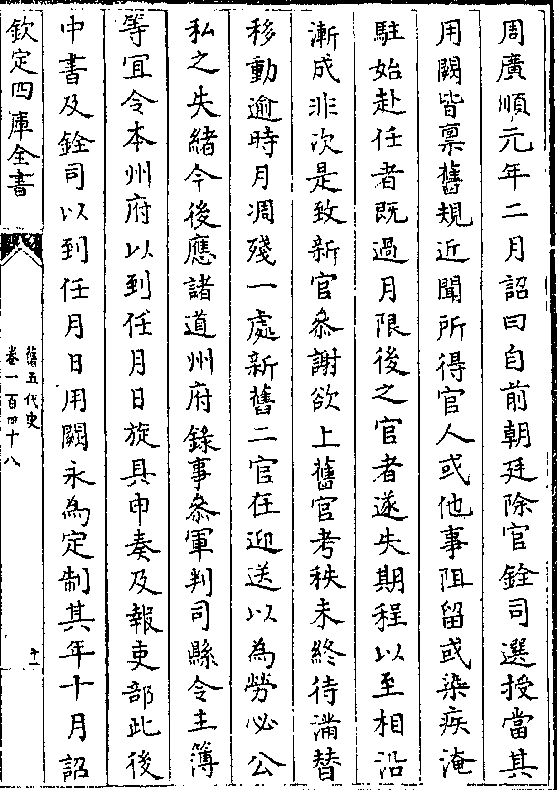 周廣順元年二月詔曰自前朝廷除官銓司選授當其
用闕皆禀舊規近聞所得官人或他事阻留或染疾淹
駐始赴任者既過月限後之官者遂失期程以至相沿
漸成非次是致新官叅謝欲上舊官考秩未終待滿替
移動逾時月凋殘一處新舊二官在迎送以為勞必公
私之失緒今後應諸道州府錄事叅軍判司縣令主簿
等宜令本州府以到任月日旋具申奏及報吏部此後
中書及銓司以到任月日用闕永為定制其年十月詔
欽定四庫全書
舊五代史
卷一百四十八
十一